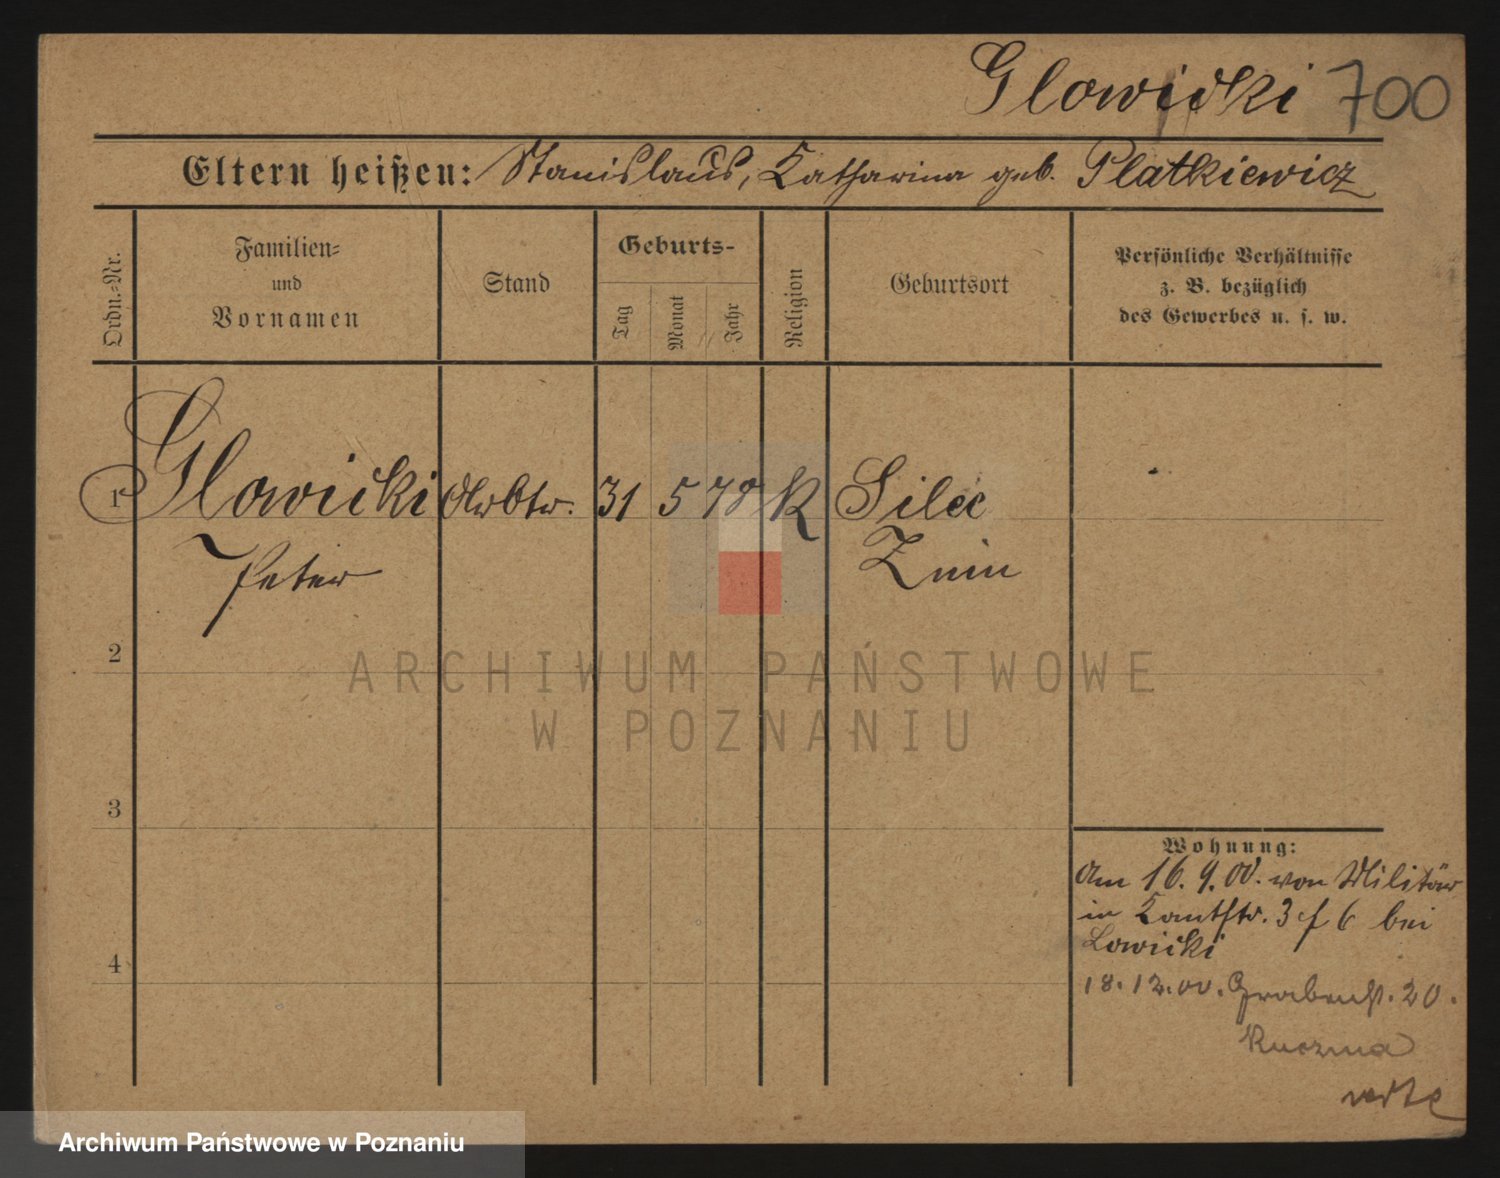 Glowicki 700
Eltern heißen: Stanislaus, Katharina geb. Platkiewicz
Ordn.-Nr.
Familien-
und
Vornamen
Stand
Geburts-
Tag
Monat
Jahr
Religion
Geburtsort
Persönliche Verhältnisse
z. B. bezüglich
des Gewerbes u. s. w.
1 Glowicki Arbtr. 31 5 78 K Silec
Peter Znin
2
3
4
Wohnung:
Am 16. 9. 00. von Militär
in Kantstr. 3 f 6 bei
Lowicki
18. 12. 00. Grabenst. 20.
Kuczma
ARCHIWUM PAŃSTWOWE
W POZNANIU
Archiwum Państwowe w Poznaniu